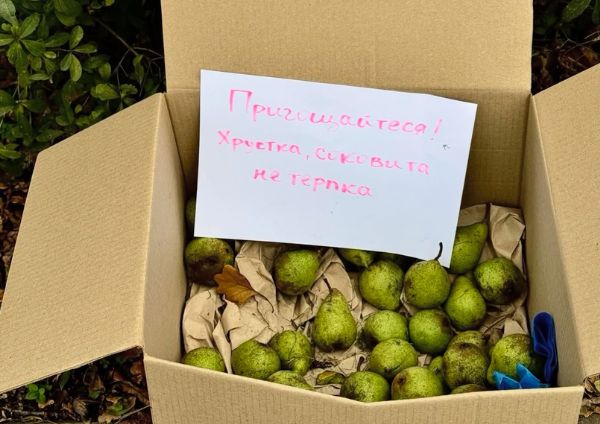 Пригощайтеся!
Хрустка, соковита
не терпка